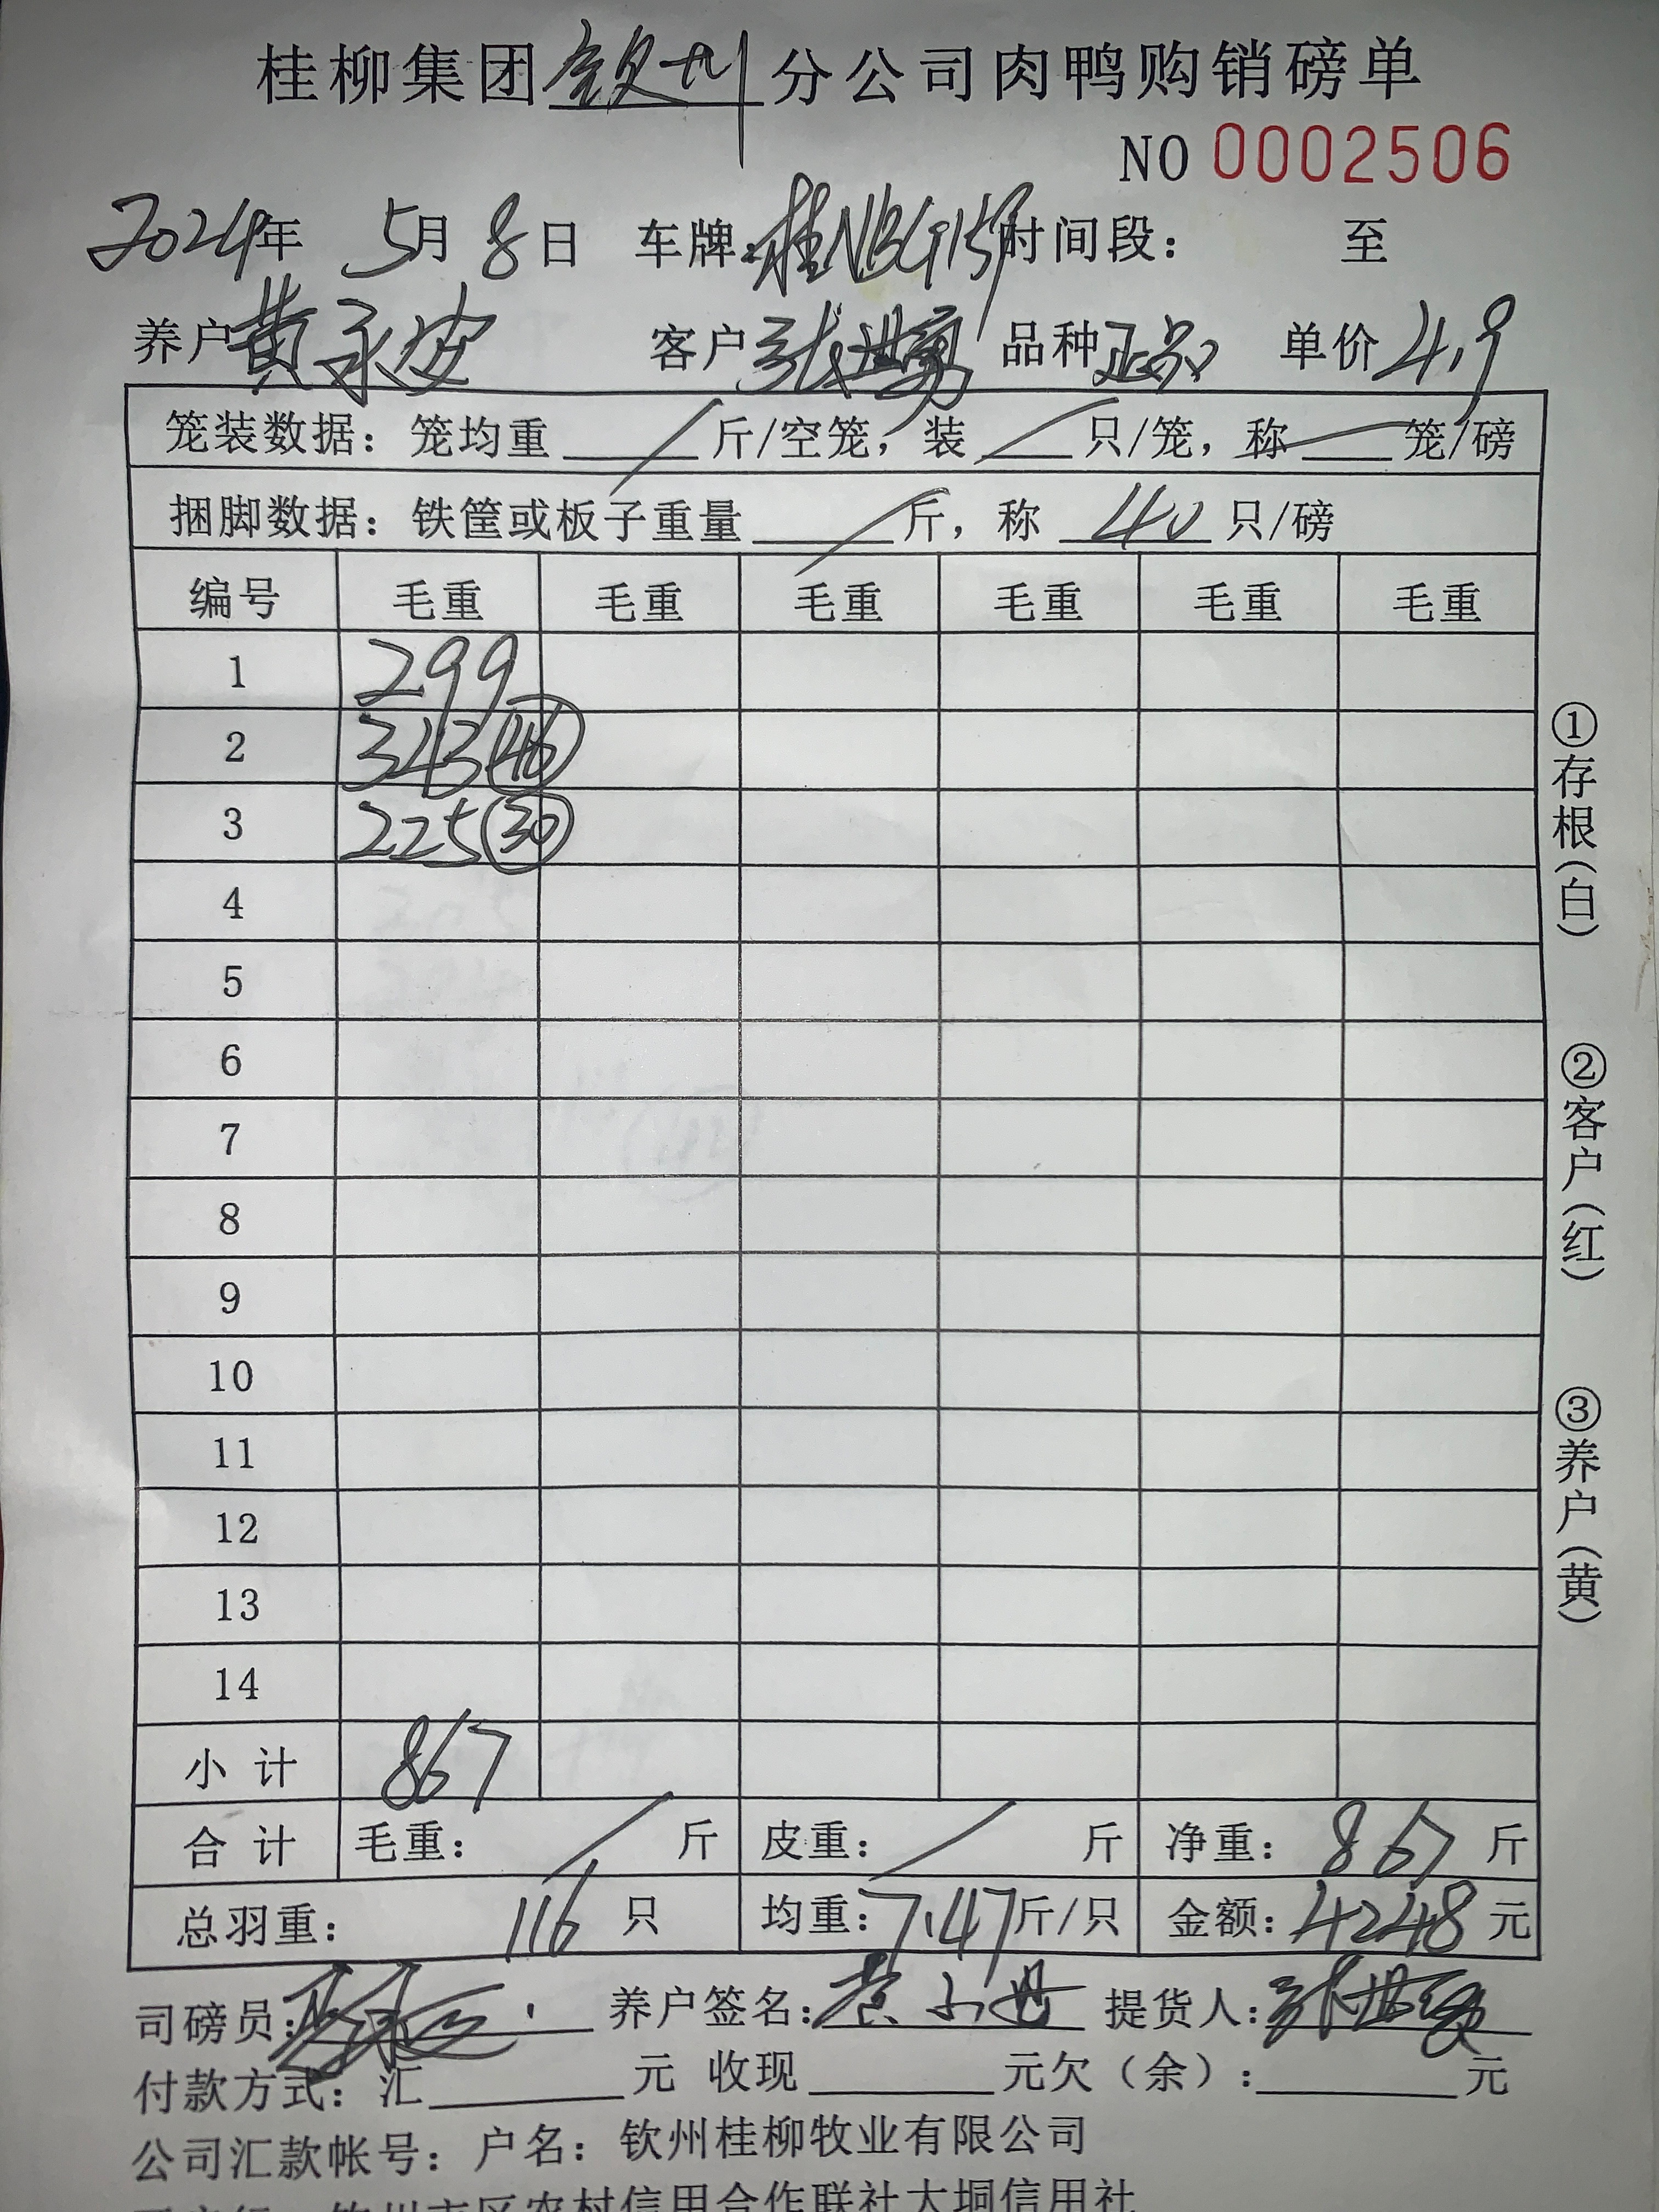 桂柳集团钦州分公司肉鸭购销磅单
NO 0002506
2024年 5月 8日 车牌：桂NBG157 时间段： 至
养户 黄永安 客户 张世勇 品种 正品 单价 4.9
笼装数据：笼均重 / 斤/空笼，装 / 只/笼，称 — 笼/磅
捆脚数据：铁筐或板子重量 / 斤，称 40 只/磅
编号 毛重 毛重 毛重 毛重 毛重 毛重
1 299
2 343 46
3 225 30
4
5
6
7
8
9
10
11
12
13
14
小计 867
合计 毛重： / 斤 皮重： / 斤 净重：867 斤
总羽重： 116 只 均重：7.47斤/只 金额：4248元
司磅员： 养户签名： 提货人：张世勇
付款方式：汇 元 收现 元欠（余）： 元
公司汇款帐号：户名：钦州桂柳牧业有限公司
钦州市区农村信用合作联社大垌信用社
①存根（白）
②客户（红）
③养户（黄）